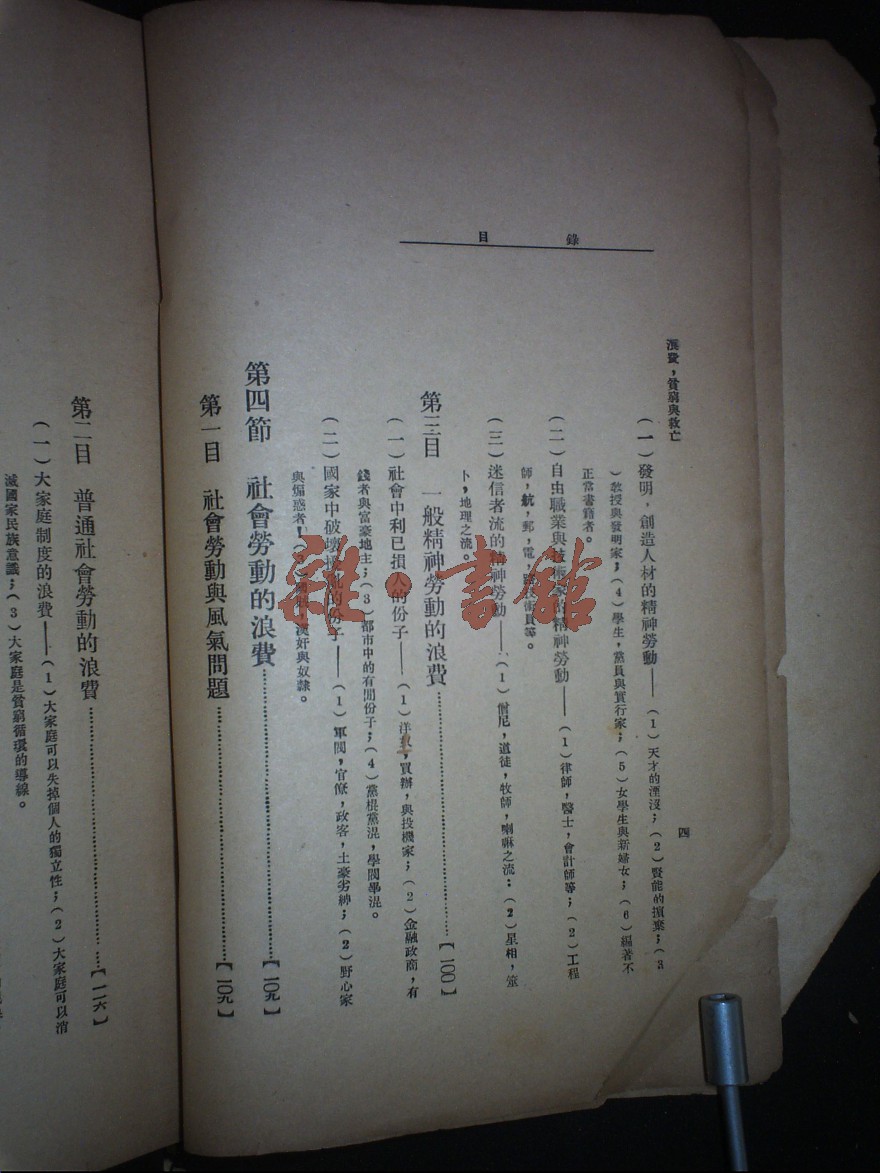 目錄
浪費，貧窮與救亡
四
（一）發明，創造人材的精神勞動——（1）天才的湮沒；（2）賢能的擯棄；（3
）教授與發明家；（4）學生，黨員與實行家；（5）女學生與新婦女；（6）編著不
正當書籍者。
（二）自由職業與技術家的精神勞動——（1）律師，醫士，會計師等；（2）工程
師，航，郵，電，路技術員等。
（三）迷信者流的精神勞動——（1）僧尼，道徒，牧師，喇嘛之流；（2）星相，筮
卜，地理之流。
第三目 一般精神勞動的浪費【一〇〇】
（一）社會中利已損人的份子——（1）洋奴，買辦，與投機家；（2）金融政商，有
錢者與富豪地主；（3）都市中的有閒份子；（4）黨棍黨混，學閥學混。
（二）國家中破壞擾亂的份子——（1）軍閥，官僚，政客，土豪劣紳；（2）野心家
與煽惑者；（3）漢奸與奴隸。
第四節 社會勞動的浪費【一〇九】
第一目 社會勞動與風氣問題【一〇九】
第二目 普通社會勞動的浪費【一一六】
（一）大家庭制度的浪費——（1）大家庭可以失掉個人的獨立性；（2）大家庭可以消
滅國家民族意識；（3）大家庭是貧窮循環的導線。
雜·書館